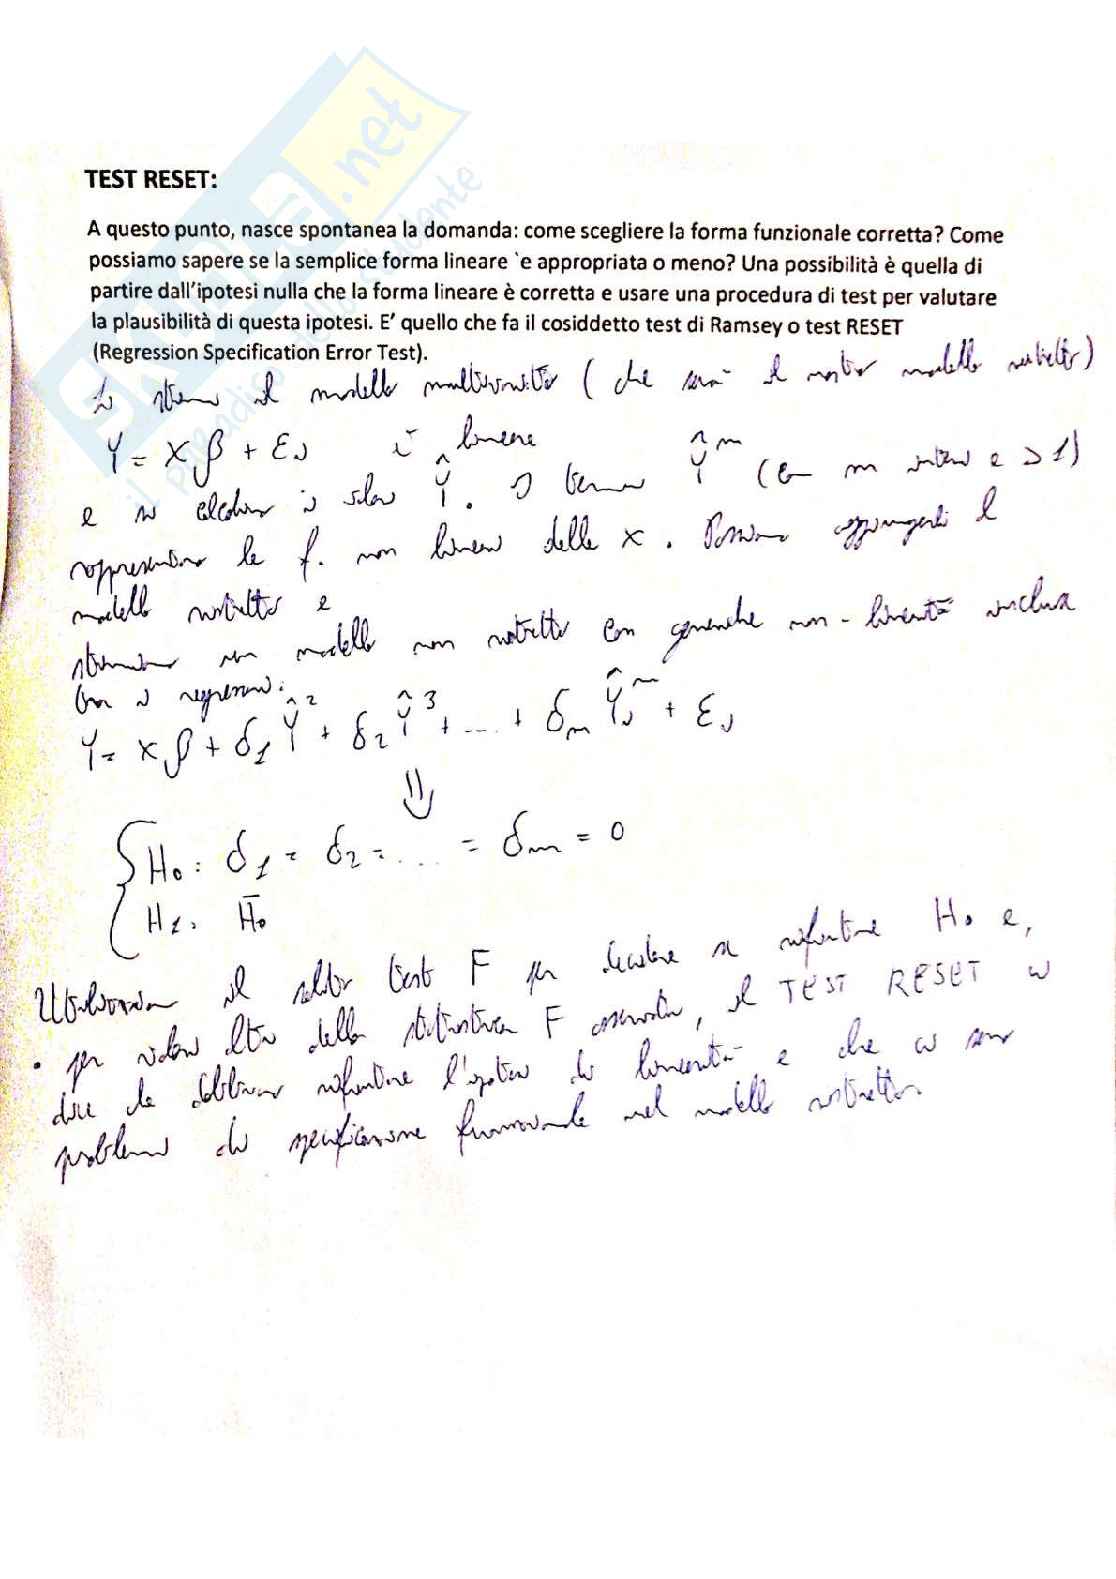 SKUOLA.net
il paradiso dello studente
TEST RESET:
A questo punto, nasce spontanea la domanda: come scegliere la forma funzionale corretta? Come
possiamo sapere se la semplice forma lineare `e appropriata o meno? Una possibilità è quella di
partire dall'ipotesi nulla che la forma lineare è corretta e usare una procedura di test per valutare
la plausibilità di questa ipotesi. E' quello che fa il cosiddetto test di Ramsey o test RESET
(Regression Specification Error Test).
il modello (che sarà il nostro modello)
Y = Xβ + ε è lineare
e si i valori Ŷ. I termini Ŷ^m (con m intero e >1)
le f. non lineari delle x. Possiamo aggiungerli al
modello ristretto e
stimare un modello non ristretto con generiche non-linearità inclusa
tra i regressori:
Y = Xβ + δ1 Ŷ² + δ2 Ŷ³ + ... + δm Ŷ^m + ε
⇓
H0: δ1 = δ2 = ... = δm = 0
H1: H̄0
il solito test F per decidere se rifiutare H0 e,
• per valori alti della statistica F osservata, il TEST RESET ci
dice che dobbiamo rifiutare l'ipotesi di linearità e che ci sono
problemi di specificazione funzionale nel modello ristretto.